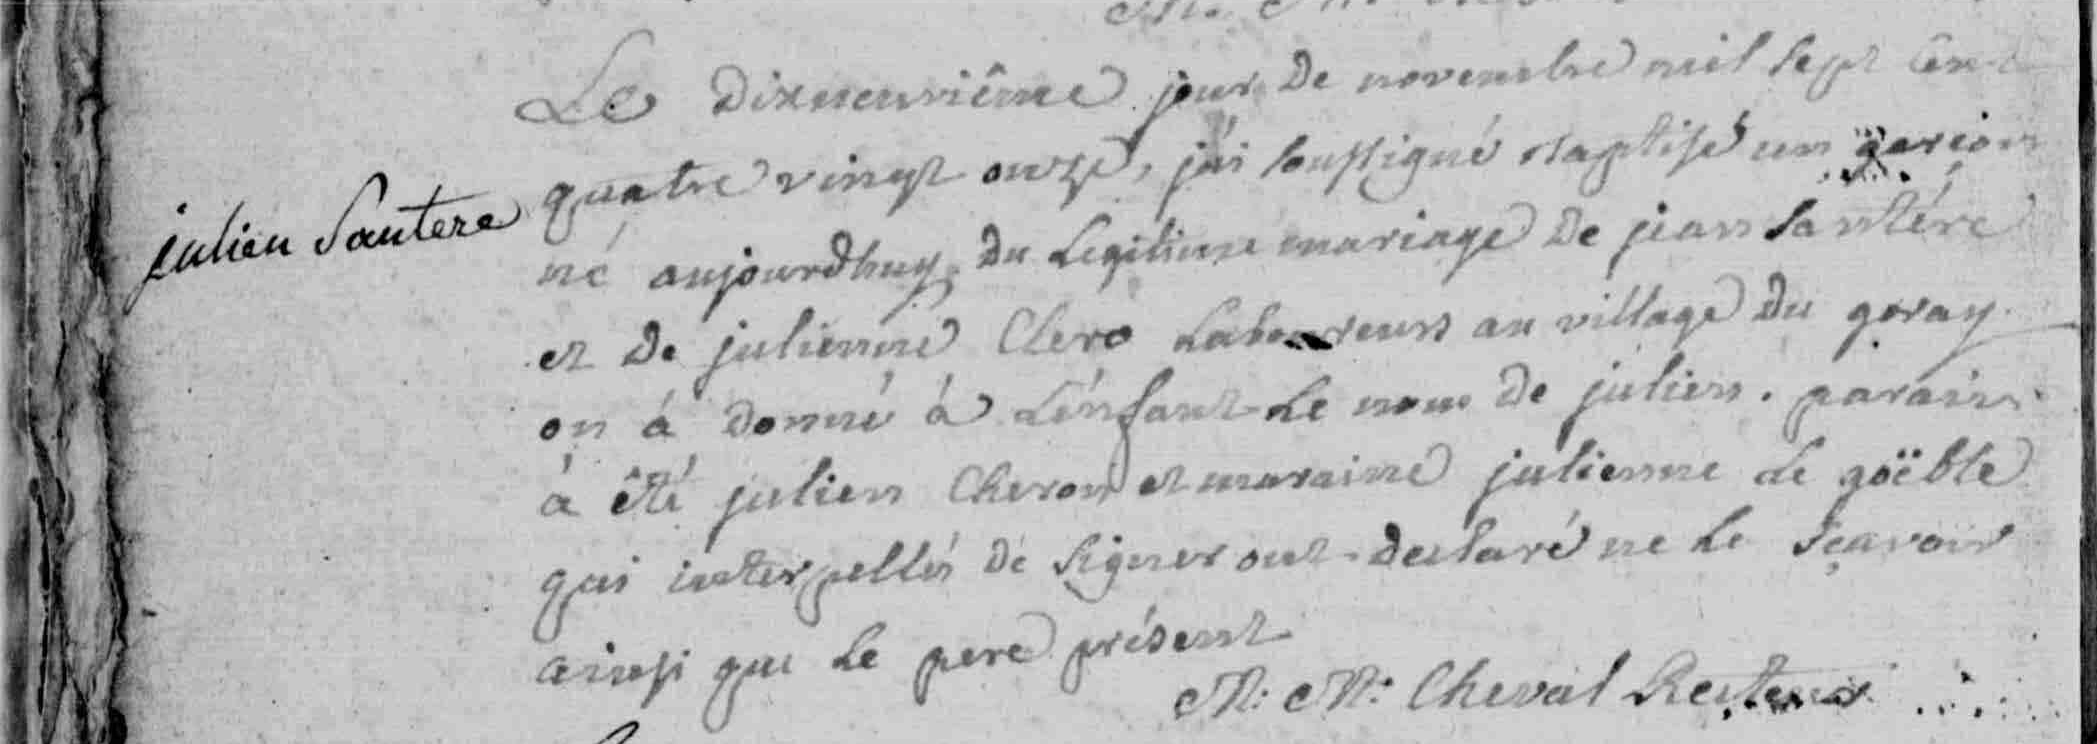 Le dixneuvième jour de novembre mil sept cent
quatre vingt onze, j'ai soussigné baptisé un garçon
julien Santere
né aujourdhuy du Legitime mariage de jean Santére
et de julienne Clero Laboureurs au village du goray
on á donné á L'énfant Le nom de julien. parain
á êté julien Cheron et maraine julienne Le goëble
qui interpellés de signer ont declaré ne Le sçavoir
ainsi que Le pere présent
M. M. Cheval Recteur